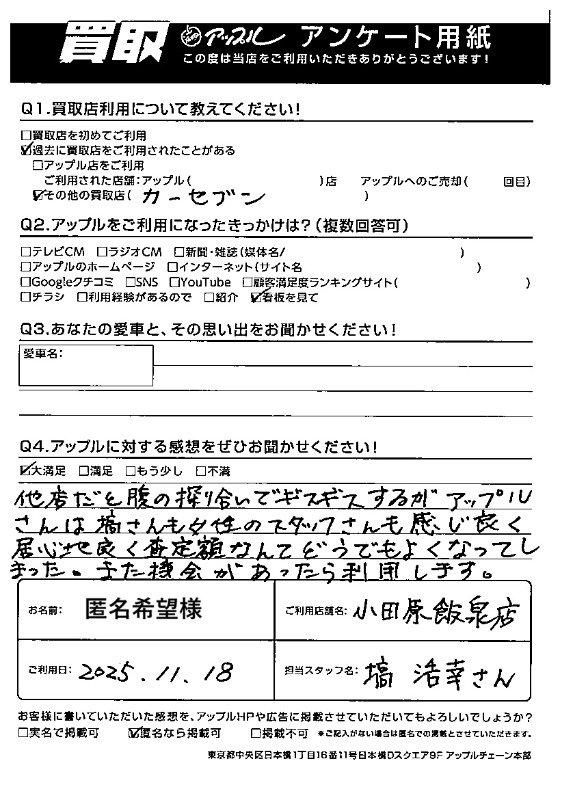 買取 アップル アンケート用紙
この度は当店をご利用いただきありがとうございます!
Q1.買取店利用について教えてください!
□買取店を初めてご利用
☑過去に買取店をご利用されたことがある
□アップル店をご利用
ご利用された店舗:アップル( )店 アップルへのご売却( 回目)
☑その他の買取店( カーセブン )
Q2.アップルをご利用になったきっかけは?(複数回答可)
□テレビCM □ラジオCM □新聞・雑誌(媒体名/ )
□アップルのホームページ □インターネット(サイト名 )
□Googleクチコミ □SNS □YouTube □顧客満足度ランキングサイト( )
□チラシ □利用経験があるので □紹介 ☑看板を見て
Q3.あなたの愛車と、その思い出をお聞かせください!
愛車名:
Q4.アップルに対する感想をぜひお聞かせください!
☑大満足 □満足 □もう少し □不満
他店だと腹の探り合いでギスギスするが アップル
さんは塙さんも女性のスタッフさんも感じ良く
居心地良く査定額なんてどうでもよくなってし
まった。また機会があったら利用します。
お名前: 匿名希望様 ご利用店舗名: 小田原飯泉店
ご利用日: 2025.11.18 担当スタッフ名: 塙 浩幸さん
お客様に書いていただいた感想を、アップルHPや広告に掲載させていただいてもよろしいでしょうか?
□実名で掲載可 ☑匿名なら掲載可 □掲載不可 *ご記入がない場合は匿名での掲載とさせていただきます。
東京都中央区日本橋1丁目16番11号日本橋Dスクエア9F アップルチェーン本部